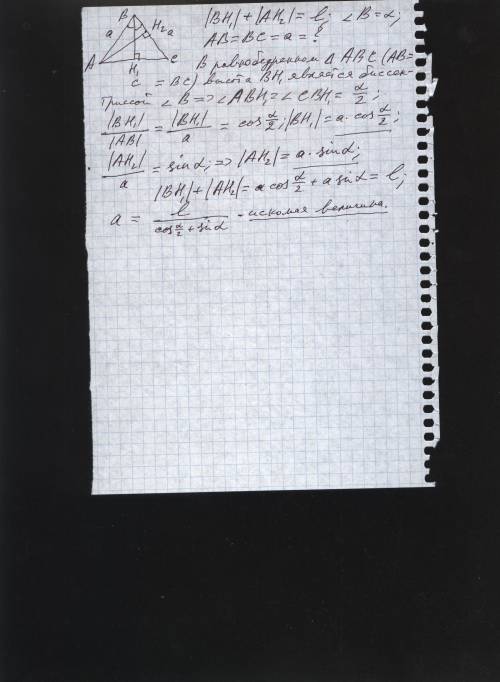 B
a H₂ a
A H₁ C
c
|BH₁| + |AH₂| = l; ∠B = α;
AB = BC = a = ?
В равнобедренном Δ ABC (AB =
= BC) высота BH₁ является биссек-
трисой ∠B ⇒ ∠ABH₁ = ∠CBH₁ = α/2;
|BH₁|/|AB| = |BH₁|/a = cos α/2; |BH₁| = a · cos α/2;
|AH₂|/a = sin α; ⇒ |AH₂| = a · sin α;
|BH₁| + |AH₂| = a cos α/2 + a sin α = l;
a = l/(cos α/2 + sin α) - искомая величина.